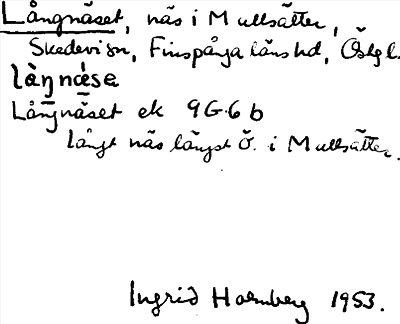 Långnäset, näs i Mullsätter,
Skedevi sn, Finspånga läns hd, Östg l.
làŋnǽse
Långnäset ek 9G6b
långt näs längst ö. i Mullsätter.
Ingrid Holmberg 1953.